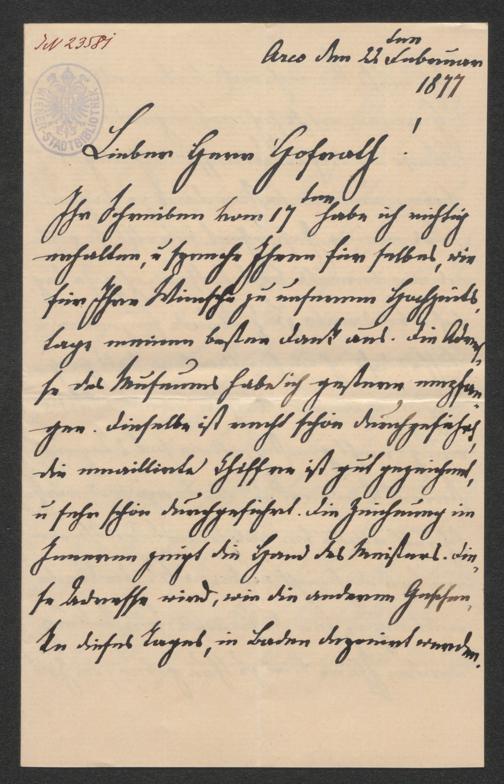 JN 23581
WIENER STADTBIBLIOTHEK
Arco den 22ten Februar
1877
Lieber Herr Hofrath!
Ihr Schreiben vom 17ten habe ich richtig
erhalten, u spreche Ihnen für selbes, wie
für Ihre Wünsche zu unserem Hochzeits-
tage meinen besten Dank aus. Die Adres-
se des Museums habe ich gestern empfan-
gen. Dieselbe ist recht schön durchgeführt,
die emaillirte Chiffre ist gut gezeichnet,
u sehr schön durchgeführt. Die Zeichnung im
Inneren zeigt die Hand des Meisters. Die-
se Adresse wird, wie die anderen Geschen-
ke dieses Tages, in Baden deponirt werden.